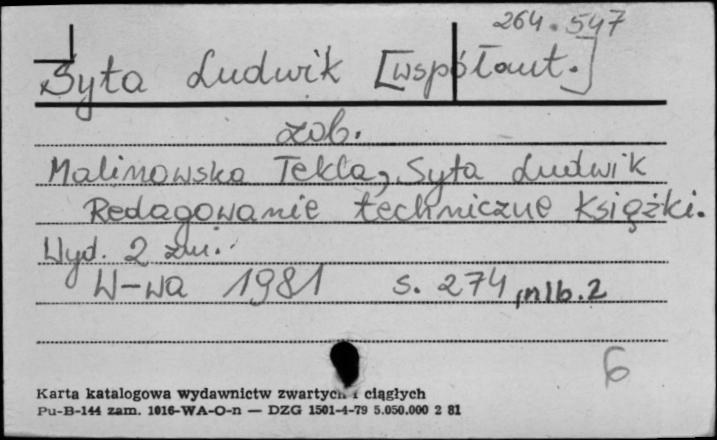 264.547
Syta Ludwik [współaut.]
zob.
Malinowska Tekla, Syta Ludwik
Redagowanie techniczne książki.
Wyd. 2 zm.
W-wa 1981 s. 274, nlb. 2
6
Karta katalogowa wydawnictw zwartych i ciągłych
Pu-B-144 zam. 1016-WA-O-n — DZG 1501-4-79 5.050.000 2 81